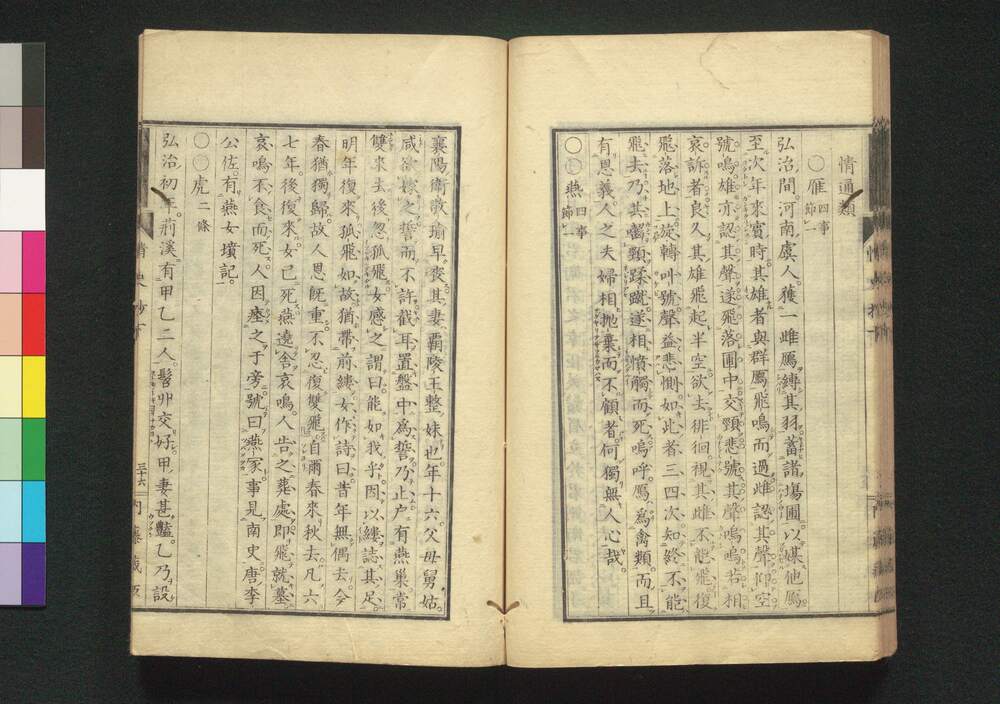 情通類
〇雁 四事節一
弘治間河南虞人獲一雌鴈縛其羽蓄諸塲圃以媒他鴈
至次年來賓時其雄者與群鴈飛鳴而過雌認其聲仰空
號鳴雄亦認其聲遂飛落圃中交頸悲號其聲嗚嗚若相
哀訴者良久其雄飛起半空欲去徘徊視其雌不能飛復
飛落地上旋轉叫號聲益悲惻如此者三四次知終不能
飛去乃共齧頸蹂蹴遂相憤觸而死嗚呼鴈爲禽類而且
有恩義人之夫婦相抛棄而不顧者何獨無人心哉
〇燕 四事節一
襄陽衛敬瑜早喪其妻霸陵王整妹也年十六父母舅姑
咸欲嫁之誓而不許截耳置盤中爲誓乃止戶有燕巢常
雙來去後忽孤飛女感之謂曰能如我乎因以縷誌其足
明年復來孤飛如故猶帶前縷女作詩曰昔年無偶去今
春猶獨歸故人恩旣重不忍復雙飛自爾春來秋去凡六
七年後復來女已死燕遶舍哀鳴人告之葬處卽飛就墓
哀鳴不食而死人因瘞之于旁號曰燕冢事見南史唐李
公佐有燕女墳記
〇虎 二條
弘治初年荊溪有甲乙二人髫丱交好甲妻甚豔乙乃設
情史抄 下
三十六